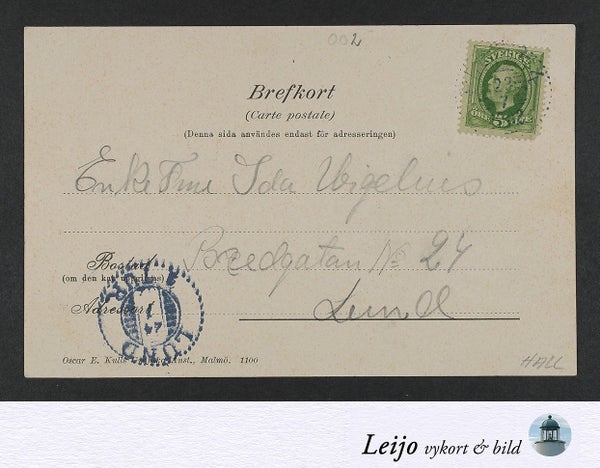 002
SVERIGE
5 ÖRE
Brefkort
(Carte postale)
(Denna sida användes endast för adresseringen)
Enke Fru Ida Wigelius
Bostad
Bredgatan No 24
(om den kan uppgifvas)
Adressort
Lund
LUND
Oscar E. Kulls Malmö. 1100
HALL
Leijo vykort & bild